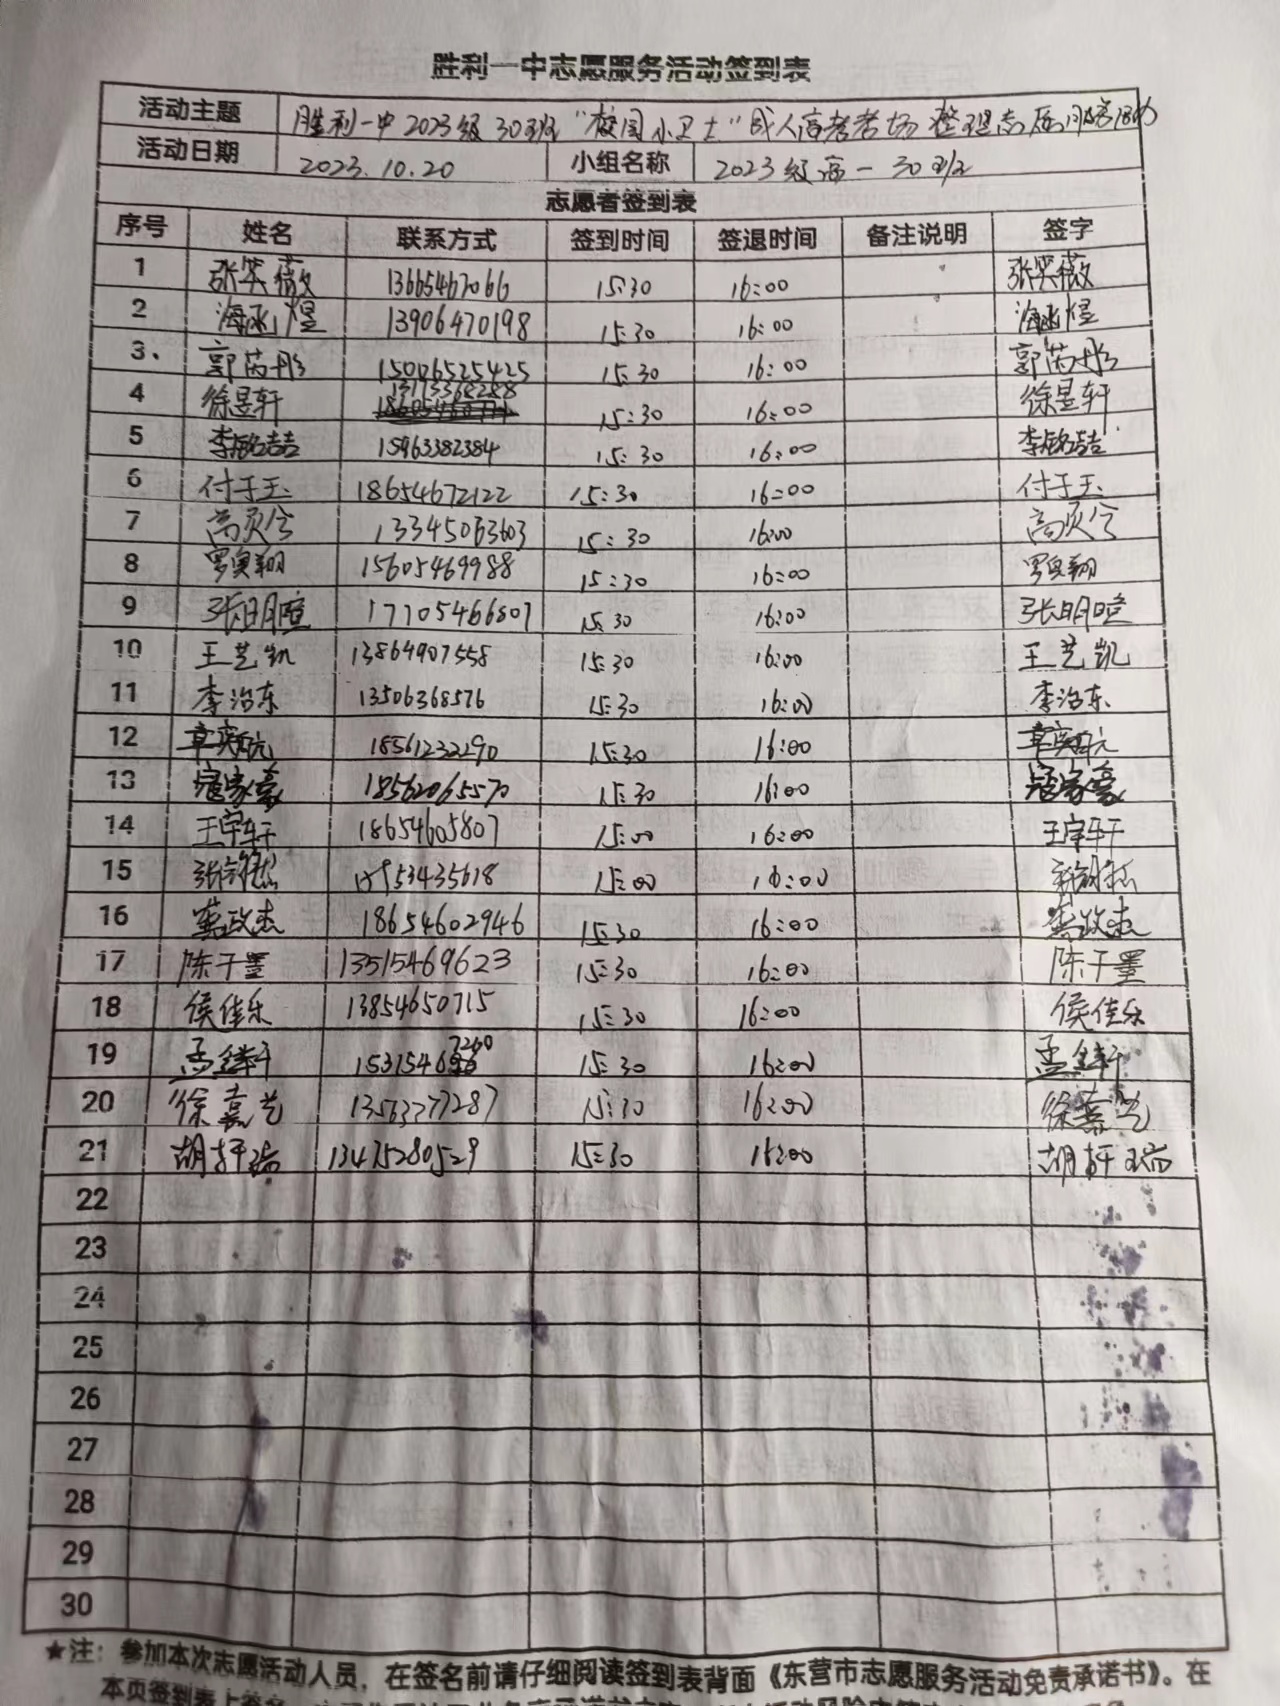 胜利一中志愿服务活动签到表
活动主题 胜利一中2023级30班"校园小卫士"成人高考考场整理志愿服务活动
活动日期 2023.10.20 小组名称 2023级高一30班
志愿者签到表
序号 姓名 联系方式 签到时间 签退时间 备注说明 签字
1 张笑薇 13665467066 15:30 16:00 张笑薇
2 海涵煜 13906470198 15:30 16:00 海涵煜
3. 郭芮彤 15006525425 15:30 16:00 郭芮彤
4 徐昱轩 15:30 16:00 徐昱轩
5 李铭喆 15963382384 15:30 16:00 李铭喆
6 付于玉 18654672122 15:30 16:00 付于玉
7 高页兮 13345063603 15:30 16:00 高页兮
8 罗奥翔 15605469988 15:30 16:00 罗奥翔
9 张明暄 17705466807 15:30 16:00 张明暄
10 王艺凯 13864907558 15:30 16:00 王艺凯
11 李治东 13506368576 15:30 16:00 李治东
12 18561232290 15:30 16:00
13 寇家豪 18562065570 15:30 16:00 寇家豪
14 王宇轩 18654605807 15:00 16:00 王宇轩
15 15:00 16:00
16 龚政杰 18654602946 15:30 16:00 龚政杰
17 陈于墨 13515469623 15:30 16:00 陈于墨
18 侯佳乐 13854650715 15:30 16:00 侯佳乐
19 15:30 16:00
20 徐嘉艺 13563777287 15:30 16:00 徐嘉艺
21 胡轩瑞 13475280529 15:30 16:00 胡轩瑞
22
23
24
25
26
27
28
29
30
★注：参加本次志愿活动人员，在签名前请仔细阅读签到表背面《东营市志愿服务活动免责承诺书》。在
本页签到表上签名